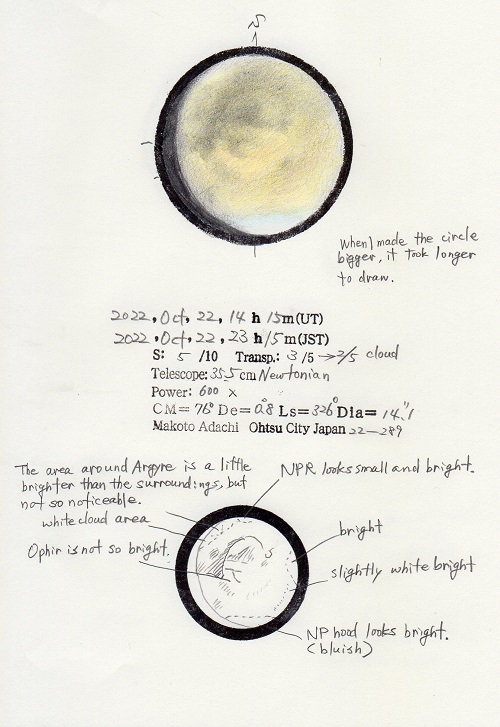 S
When I made the circle
bigger, it took longer
to draw.
2022, Oct, 22, 14 h 15m(UT)
2022, Oct, 22, 23 h 15m(JST)
S: 5 /10 Transp.: 3 /5 → 2/5 cloud
Telescope: 35.5 cm Newtonian
Power: 600 x
CM= 76° De= 0.8° Ls= 326° Dia= 14."1
Makoto Adachi Ohtsu City Japan 22—289
The area around Argyre is a little
brighter than the surroundings, but
not so noticeable.
NPR looks small and bright.
white cloud area
bright
Ophir is not so bright.
S
slightly white bright
NP hood looks bright.
(bluish)